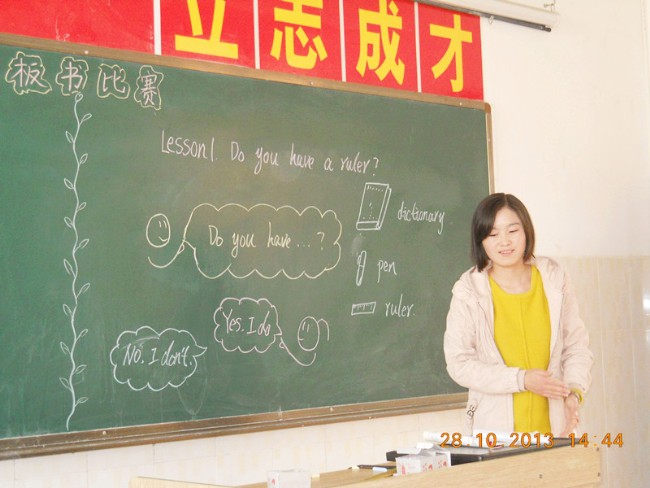 立志成才
板书比赛
Lesson1. Do you have a ruler?
Do you have...?
dictionary
pen
ruler
Yes. I do
No. I don't.
28 10 2013 14:44